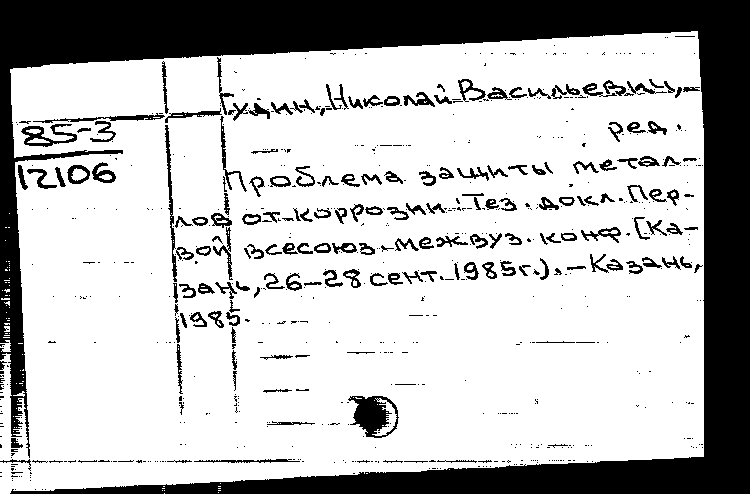 Гудин, Николай Васильевич,
ред.
85-3
12106
Проблема защиты метал-
лов от коррозии: Тез. докл. Пер-
вой всесоюз. межвуз. конф. [Ка-
зань, 26-28 сент. 1985г.). - Казань,
1985.